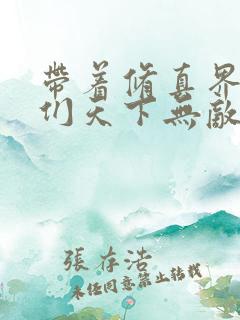 帶着脩真界
们天下無敵
張存浩
未經同意禁止轉載